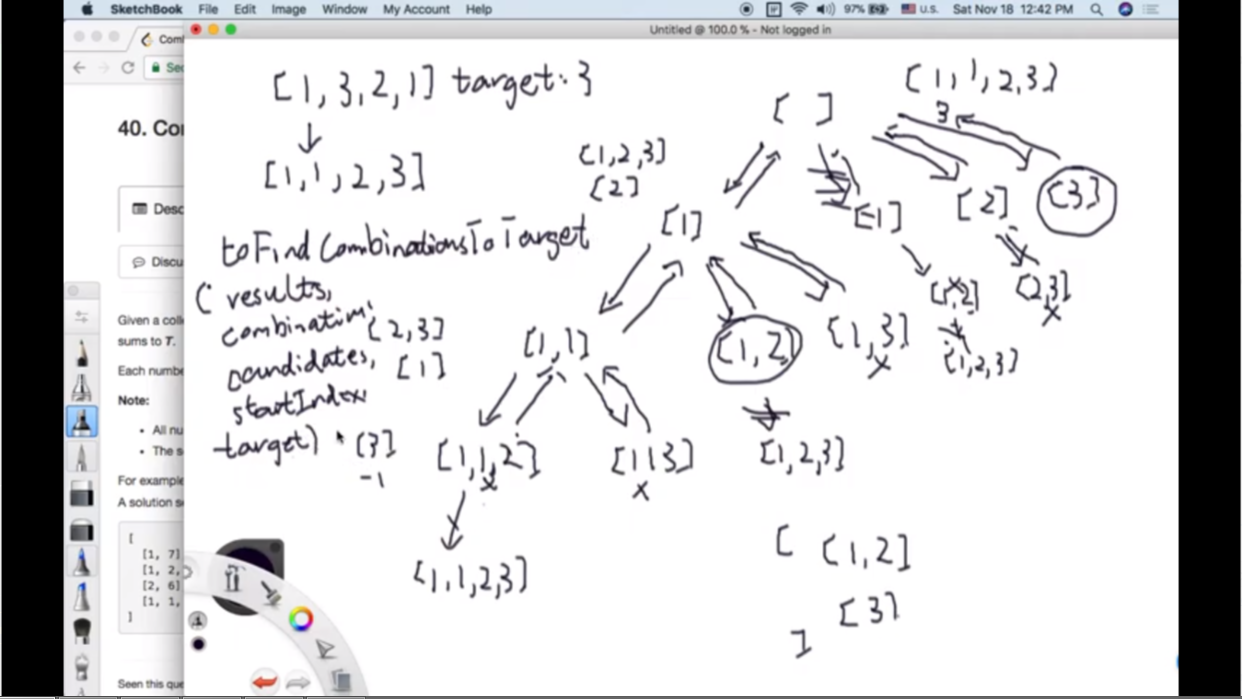 SketchBook File Edit Image Window My Account Help
97% U.S. Sat Nov 18 12:42 PM
Untitled @ 100.0 % - Not logged in
40. Co
Desc
Discu
Given a coll
sums to T.
Each numbe
Note:
All nu
The s
For example
A solution s
[
[1, 7]
[1, 2,
[2, 6]
[1, 1,
]
Seen this que
[1, 3, 2, 1] target: 3
[1, 1, 2, 3]
toFindCombinationsToTarget
( results,
combination, [2,3]
candidates, [1]
startIndex
target) [3]
-1
[1,2,3]
[2]
[ ]
[1, 1, 2, 3]
3
[1] [1] [2] [3]
[1,1] [1,2] [1,3] [1,2] [2,3]
x x x
[1,2,3]
[1,1,2] [113] [1,2,3]
x x
[1,1,2,3]
[ [1,2]
[3]
]